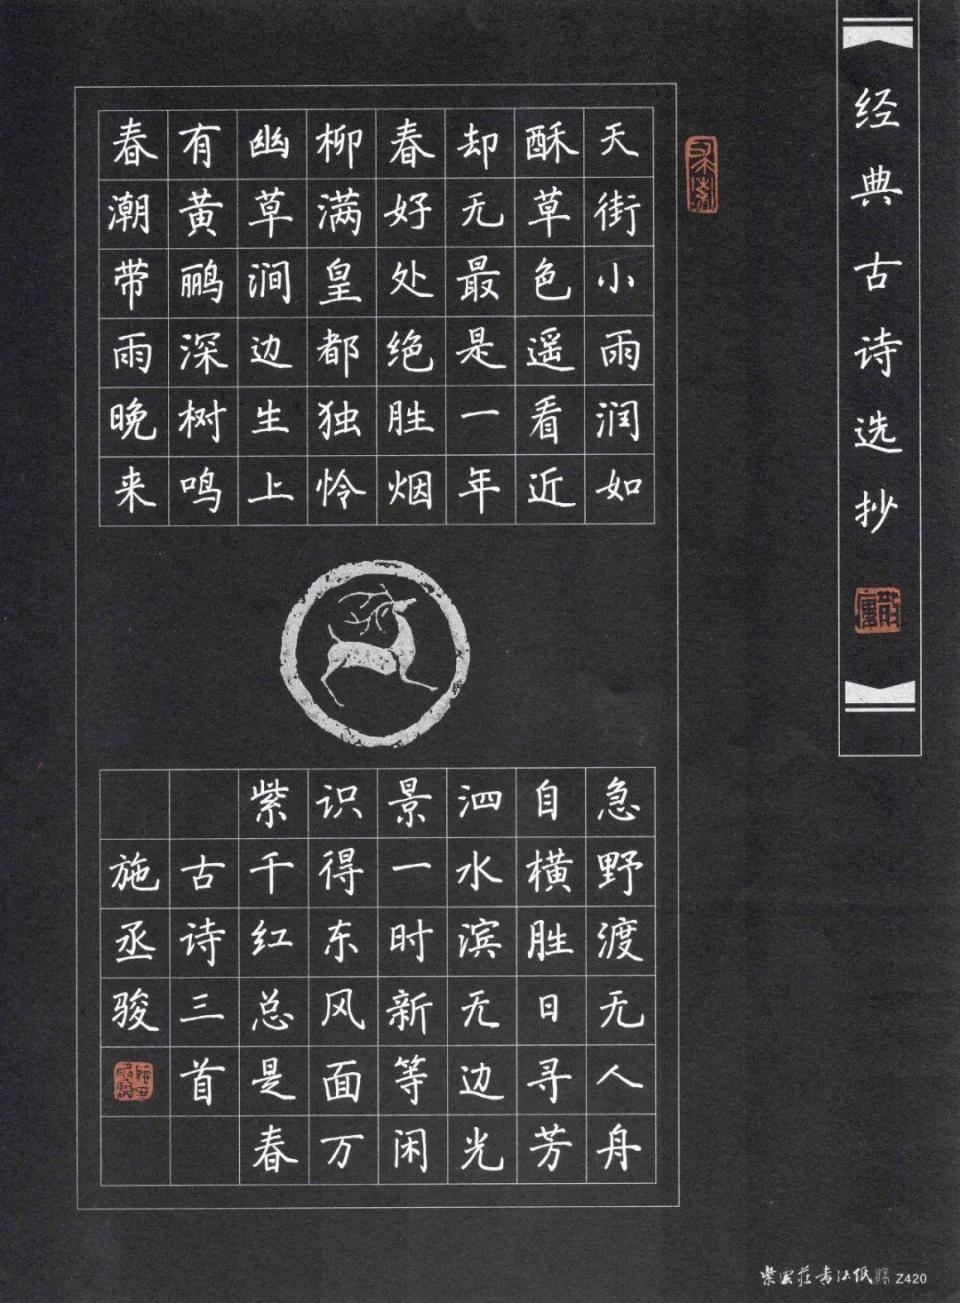 经典古诗选抄
天街小雨润如
酥草色遥看近
却无最是一年
春好处绝胜烟
柳满皇都独怜
幽草涧边生上
有黄鹂深树鸣
春潮带雨晚来
急野渡无人舟
自横胜日寻芳
泗水滨无边光
景一时新等闲
识得东风面万
紫千红总是春
古诗三首
施丞骏
紫云庄书法纸 Z420